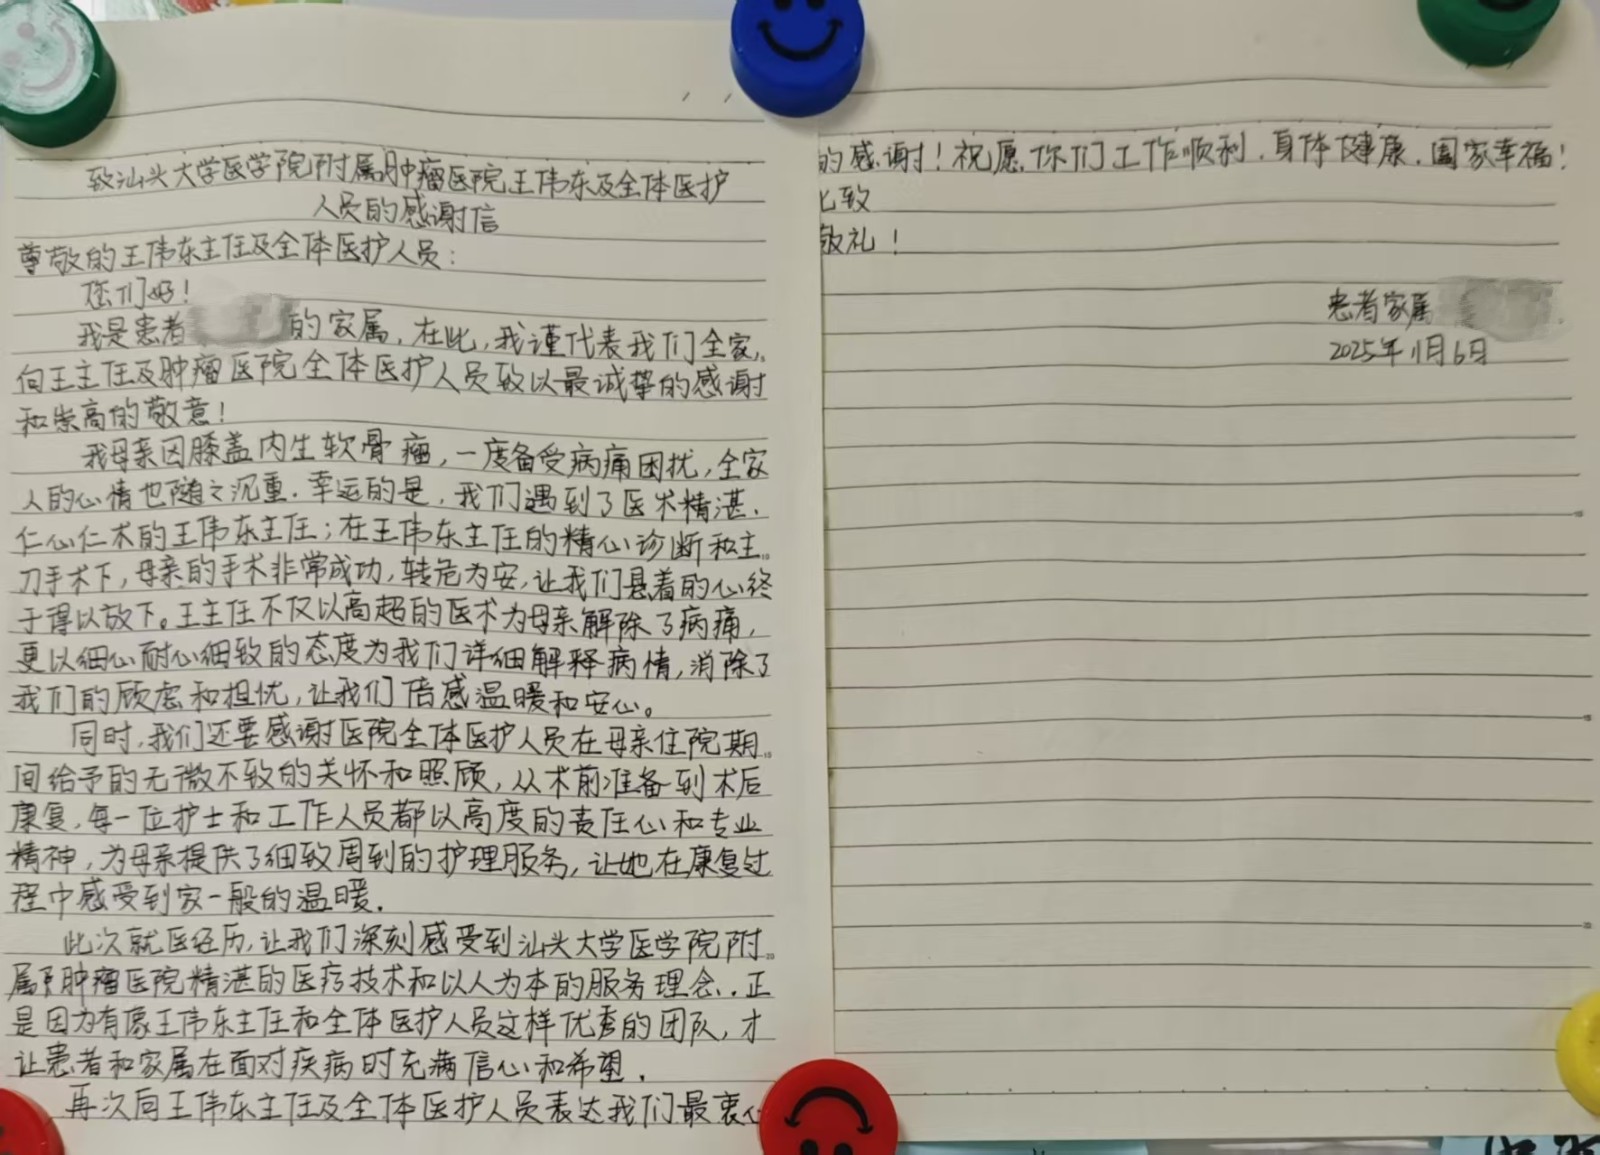 致汕头大学医学院附属肿瘤医院王伟东及全体医护
人员的感谢信
尊敬的王伟东主任及全体医护人员：
您们好！
我是患者的家属，在此，我谨代表我们全家，
向王主任及肿瘤医院全体医护人员致以最诚挚的感谢
和崇高的敬意！
我母亲因膝盖内生软骨瘤，一度备受病痛困扰，全家
人的心情也随之沉重．幸运的是，我们遇到了医术精湛．
仁心仁术的王伟东主任；在王伟东主任的精心诊断和主
刀手术下，母亲的手术非常成功，转危为安，让我们悬着的心终
于得以放下。王主任不仅以高超的医术为母亲解除了病痛，
更以细心耐心细致的态度为我们详细解释病情，消除了
我们的顾虑和担忧，让我们倍感温暖和安心。
同时，我们还要感谢医院全体医护人员在母亲住院期
间给予的无微不致的关怀和照顾，从术前准备到术后
康复，每一位护士和工作人员都以高度的责任心和专业
精神，为母亲提供了细致周到的护理服务，让她在康复过
程中感受到家一般的温暖．
此次就医经历，让我们深刻感受到汕头大学医学院附
属肿瘤医院精湛的医疗技术和以人为本的服务理念．．正
是因为有像王伟东主任和全体医护人员这样优秀的团队，才
让患者和家属在面对疾病时充满信心和希望．
再次向王伟东主任及全体医护人员表达我们最衷心
的感谢！祝愿你们工作顺利．身体健康．阖家幸福！
此致
敬礼！
患者家属
2025年11月6日